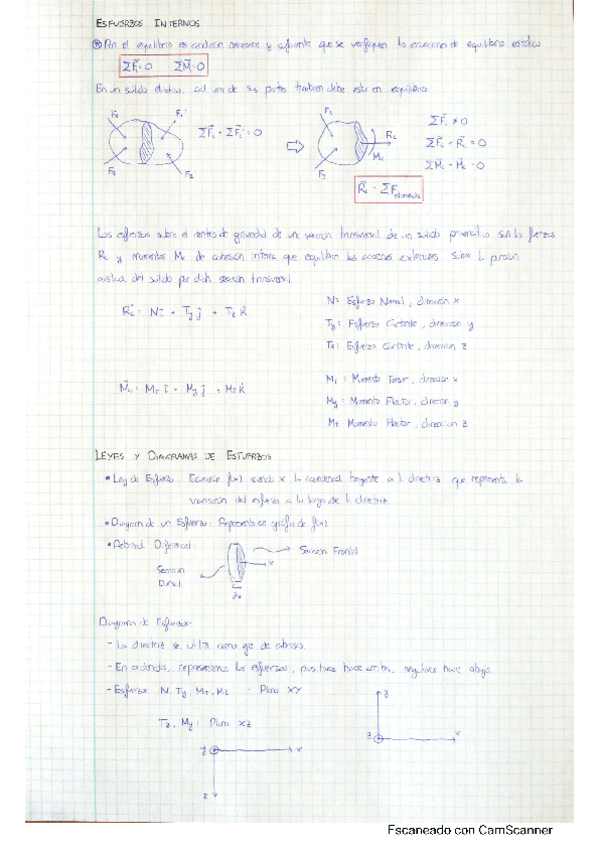 ESFUERZOS INTERNOS
Para el equilibrio es condición necesaria y suficiente que se verifiquen las ecuaciones de equilibrio estático
ΣF̄=0 ΣM̄=0
En un sólido elástico, cada una de sus partes también debe estar en equilibrio
F₁ F₁' ΣF̄ᵢ + ΣF̄ᵢ' = 0
F₂ F₂'
F₁ R_L M_L F₂
ΣF̄ᵢ ≠ 0
ΣF̄ᵢ - R̄ = 0
R̄ = ΣF
Los esfuerzos sobre el centro de gravedad de una sección transversal de un sólido prismático son las fuerzas
R_L y momentos M_L de cohesión interna que equilibran las acciones exteriores sobre la porción
del sólido por dicha sección transversal
R̄_L = N ī + Ty j̄ + Tz k̄
N = Esfuerzo Normal, dirección x
Ty: Esfuerzo Cortante, dirección y
Tz: Esfuerzo Cortante, dirección z
M̄_L = M_T ī + My j̄ + Mz k̄
M_T: Momento Torsor, dirección x
My: Momento Flector, dirección y
Mz: Momento Flector, dirección z
LEYES Y DIAGRAMAS DE ESFUERZOS
• Ley de Esfuerzo: función f(x) siendo x la coordenada tangente a la directriz que representa la
variación del esfuerzo a lo largo de la directriz
• Diagrama de un Esfuerzo: Representación gráfica de f(x)
• Rebanada Diferencial:
Sección Frontal
Sección Dorsal
x
dx
Diagrama de Esfuerzos:
- La directriz se utiliza como eje de abscisas.
- En ordenadas, representamos los esfuerzos, positivos hacia arriba, negativos hacia abajo.
- Esfuerzos N, Ty, M_T, Mz - Plano XY
y
z x
Tz, My: Plano XZ
y x
z
Escaneado con CamScanner